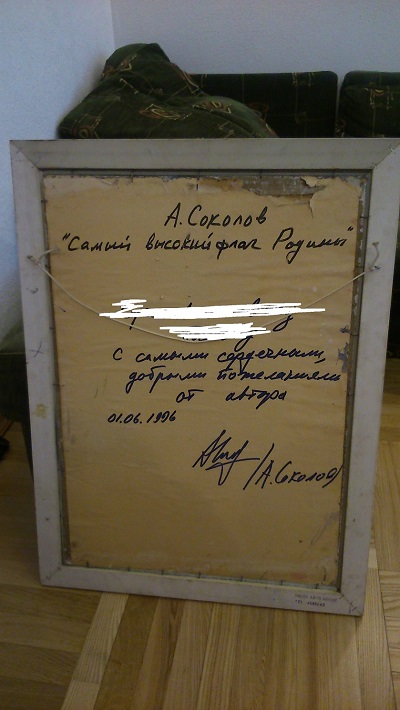 А. Соколов
"Самый высокий флаг Родины"
С самыми сердечными,
добрыми пожеланиями
от автора
01.06.1996
/А. Соколов/